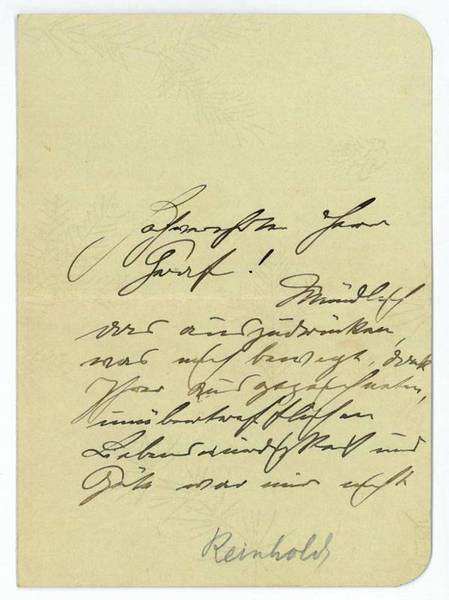 Hochverehrter Herr
Graf!
Mündlich
das auszudrücken,
was mich bewegt, dank
Ihrer ausgezeichneten,
unübertrefflichen
Liebenswürdigkeit und
Güte war mir nicht
Reinhold